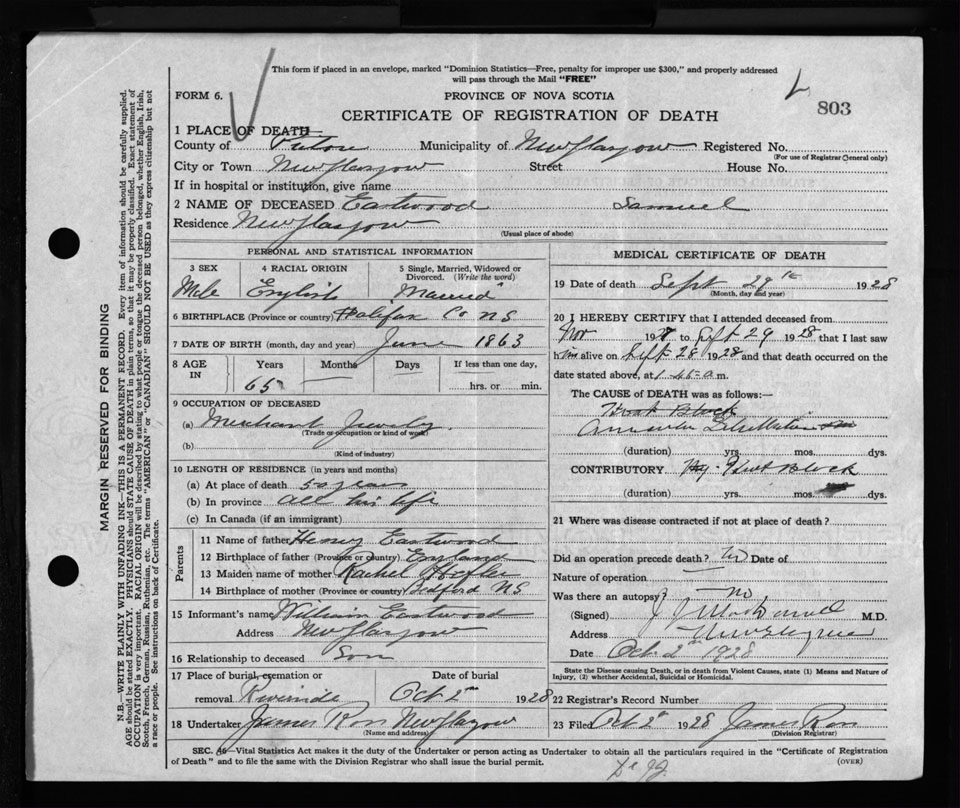 This form if placed in an envelope, marked "Dominion Statistics—Free, penalty for improper use $300," and properly addressed
will pass through the Mail "FREE"
FORM 6.
PROVINCE OF NOVA SCOTIA
803
CERTIFICATE OF REGISTRATION OF DEATH
1 PLACE OF DEATH
County of Pictou Municipality of New Glasgow Registered No.
(For use of Registrar General only)
City or Town New Glasgow Street House No.
If in hospital or institution, give name
2 NAME OF DECEASED Eastwood Samuel
Residence New Glasgow
(Usual place of abode)
PERSONAL AND STATISTICAL INFORMATION
3 SEX 4 RACIAL ORIGIN 5 Single, Married, Widowed or Divorced. (Write the word)
Male English Married
6 BIRTHPLACE (Province or country) Halifax Co NS
7 DATE OF BIRTH (month, day and year) June 1863
8 AGE IN Years Months Days If less than one day,
65 — hrs. or min.
9 OCCUPATION OF DECEASED
(a) Merchant Jewelry
(Trade or occupation or kind of work)
(b)
(Kind of industry)
10 LENGTH OF RESIDENCE (in years and months)
(a) At place of death 50 years
(b) In province all his life
(c) In Canada (if an immigrant)
Parents
11 Name of father Henry Eastwood
12 Birthplace of father (Province or country) England
13 Maiden name of mother Rachel
14 Birthplace of mother (Province or country) Bedford NS
15 Informant's name William Eastwood
Address New Glasgow
16 Relationship to deceased Son
17 Place of burial, cremation or removal Riverside Date of burial Oct 2nd 1928
18 Undertaker James Ross New Glasgow
(Name and address)
MEDICAL CERTIFICATE OF DEATH
19 Date of death Sept 29th 1928
(Month, day and year)
20 I HEREBY CERTIFY that I attended deceased from
192 to Sept 29 1928, that I last saw
him alive on Sept 28 1928 and that death occurred on the
date stated above, at 1-45 a m.
The CAUSE of DEATH was as follows:—
Heart Block
Auricular Fibrillation
(duration) yrs. mos. dys.
CONTRIBUTORY Heart Block
(duration) yrs. mos. dys.
21 Where was disease contracted if not at place of death?
Did an operation precede death? No Date of
Nature of operation —
Was there an autopsy? No
(Signed) M.D.
Address New Glasgow
Date Oct 2nd 1928
State the Disease causing Death, or in death from Violent Causes, state (1) Means and Nature of
Injury, (2) whether Accidental, Suicidal or Homicidal.
22 Registrar's Record Number
23 Filed Oct 2nd 1928 James Ross
(Division Registrar)
SEC. 46—Vital Statistics Act makes it the duty of the Undertaker or person acting as Undertaker to obtain all the particulars required in the "Certificate of Registration
of Death" and to file the same with the Division Registrar who shall issue the burial permit.
(OVER)
MARGIN RESERVED FOR BINDING
N.B.—WRITE PLAINLY WITH UNFADING INK—THIS IS A PERMANENT RECORD. Every item of information should be carefully supplied.
AGE should be stated EXACTLY. PHYSICIANS should STATE CAUSE OF DEATH in plain terms, so that it may be properly classified. Exact statement of
OCCUPATION is very important. RACIAL ORIGIN will be described by stating to what people or tongue the deceased person belonged, whether English, Irish,
Scotch, French, German, Russian, Ruthenian, etc. The terms "AMERICAN" or "CANADIAN" SHOULD NOT BE USED as they express citizenship but not
a race or people. See instructions on back of Certificate.